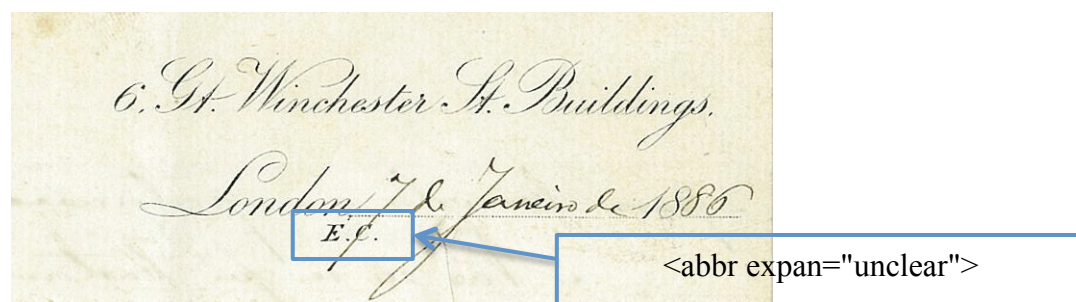 6. Gt. Winchester St. Buildings.
London, 7 de Janeiro de 1886
E.C.
<abbr expan="unclear">